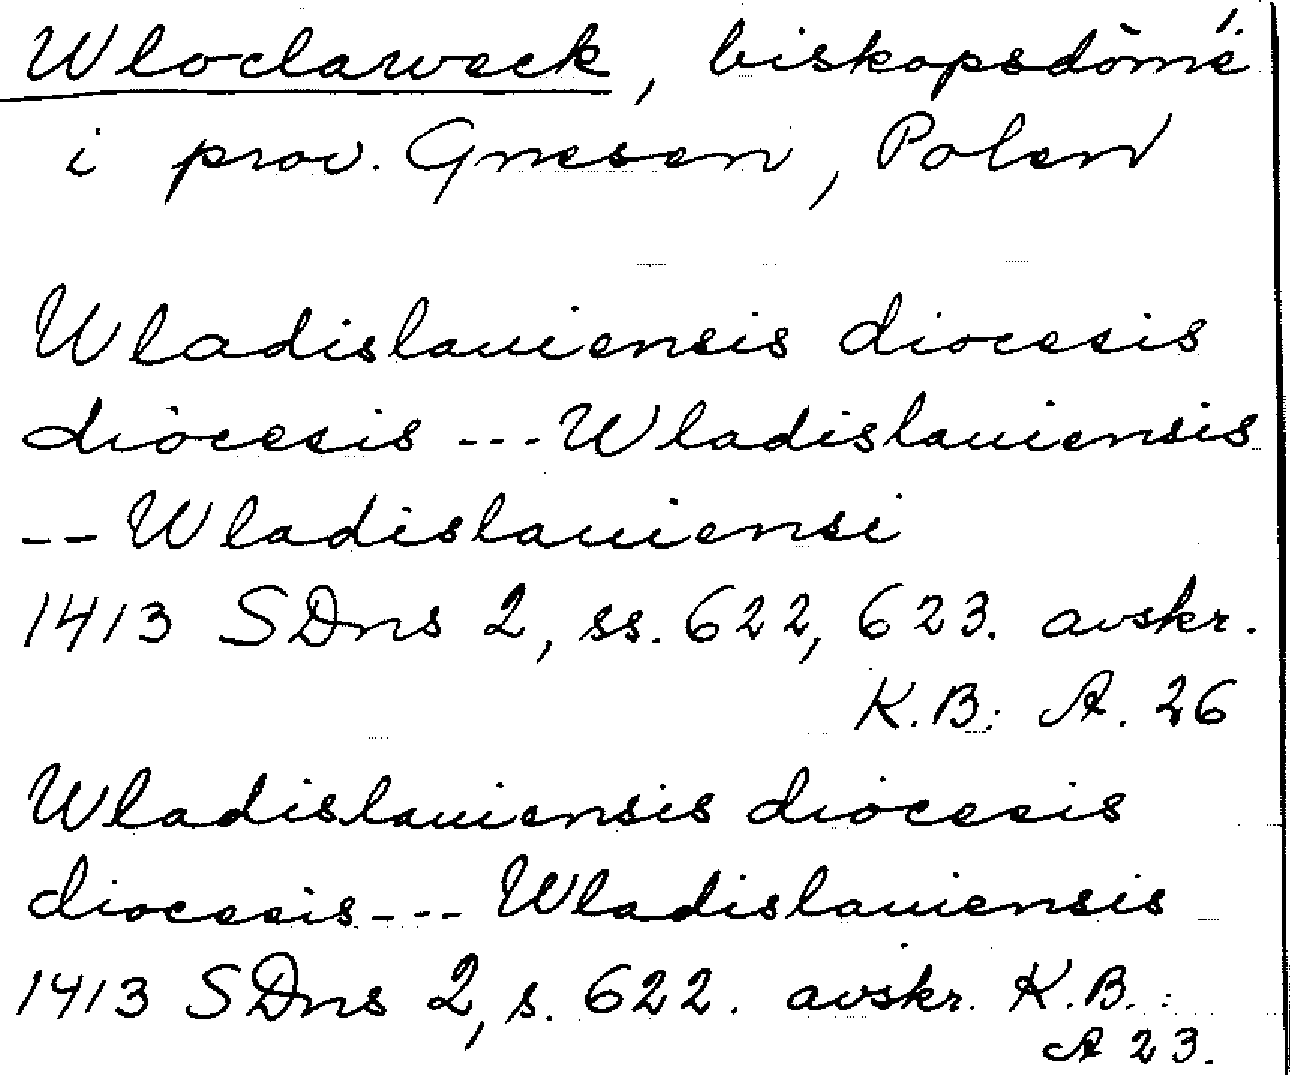 Wloclaweck, biskopsdöme
i prov. Gnesen, Polen
Wladislauiensis diocesis
diocesis --- Wladislauiensis
-- Wladislauiensi
1413 SDns 2, ss. 622, 623. avskr.
K.B. A. 26
Wladislauiensis diocesis
diocesis --- Wladislauiensis
1413 SDns 2, s. 622. avskr. K.B.:
A 23.